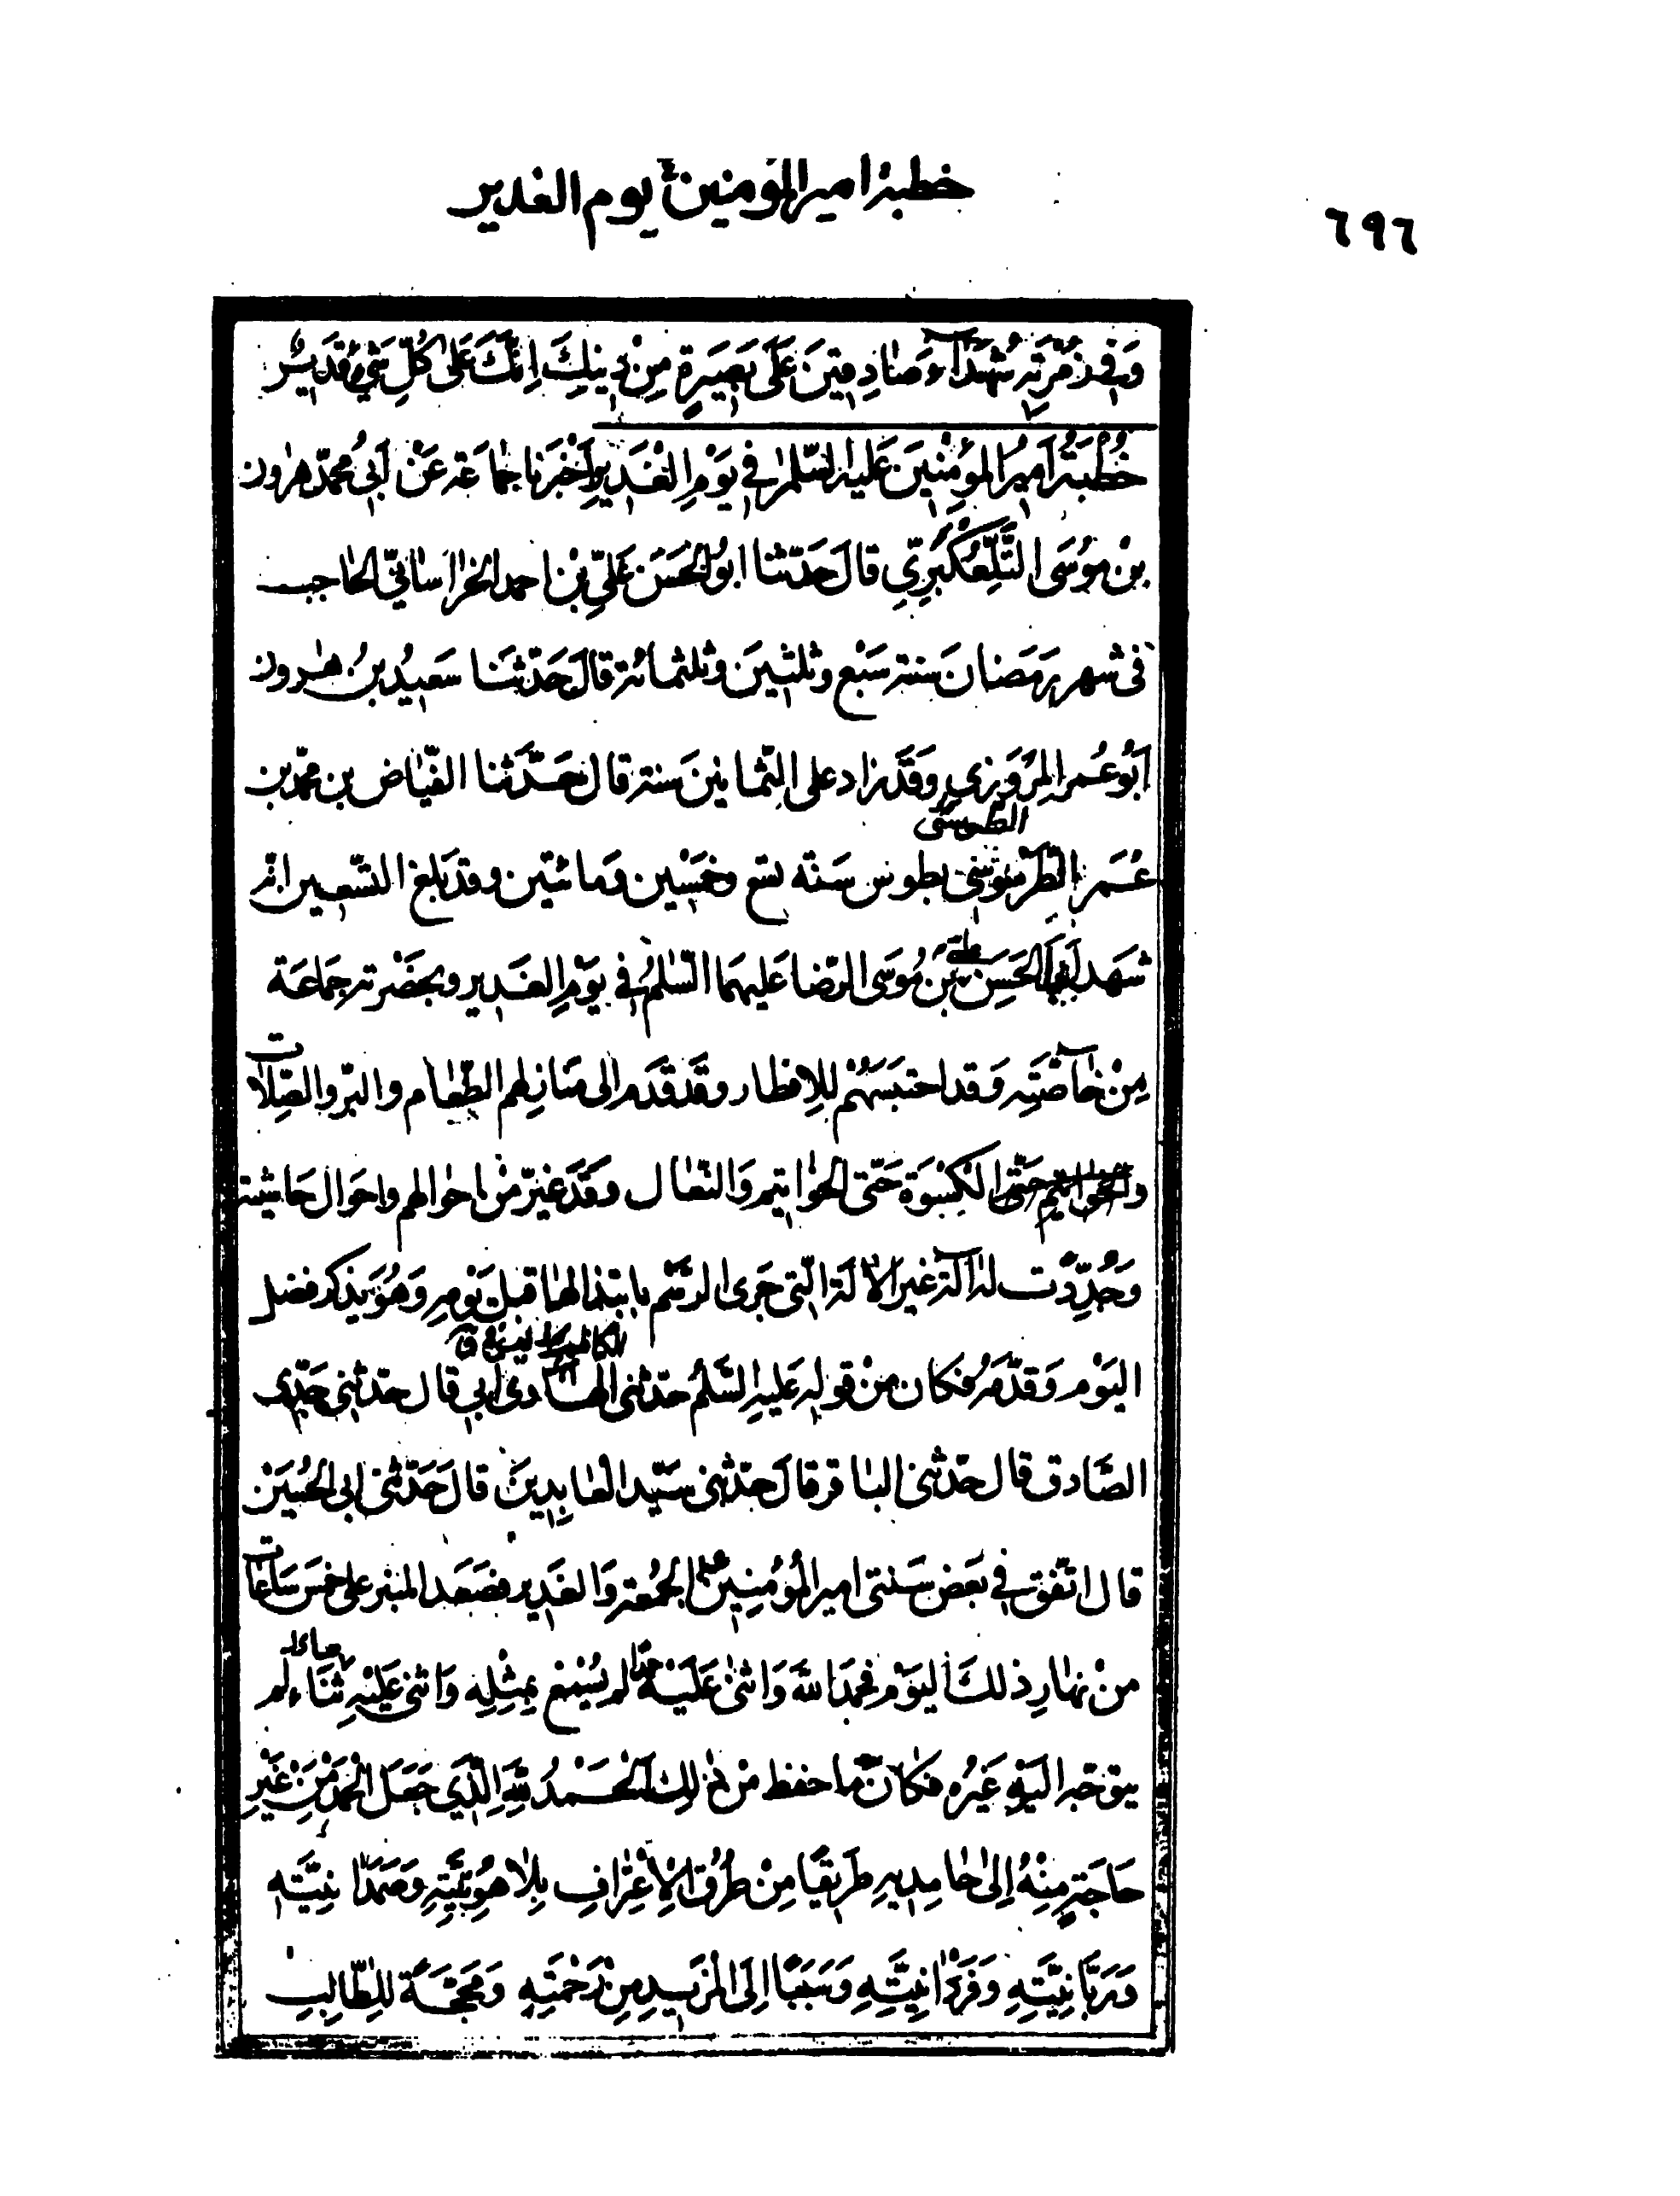 خطبة امير المومنين ع يوم الغدير
٦٩٦
وَفِي زُمْرَتِهِ شُهَدَآءَ صَادِقِينَ عَلَى بَصِيرَةٍ مِنْ دِينِكَ اِنَّكَ عَلَى كُلِّ شَيْءٍ قَدِيرٌ
خُطْبَةُ اَمِيرِ الْمُؤْمِنِينَ عَلَيْهِ السَّلٰمُ فِي يَوْمِ الْغَدِيرِ اَخْبَرَنا جَماعَة عَنْ أَبِي مُحَمَّد هٰرُون
بْنِ مُوسَى التَّلَّعُكْبَرِيِّ قالَ حَدَّثَنا ابُو الْحَسَن عَلِيِّ بْن احمد الخراسانيّ الحاجب
فى شهر رَمَضانَ سَنة سَبْع وثلثينَ وثلثمائة قالَ حَدَّثَنا سَعِيدُ بنُ هٰرون
اَبُو عُمَر المَرْوَزِي وَقَدْ زاد على الثّمانينَ سَنة قال حَدَّثَنا الفيّاض بن محمّد بن
الطوسى
عُمَر الطَّرْسُوسِي بطوس سَنَة تسع وخَمْسِين وَمائتين وقد بَلغ التسعين انّه
شَهِدَ اَبَا الْحَسَنِ عليّ بْنَ مُوسَى الرّضا عَلَيهمَا السَّلٰمُ فِي يَوْمِ الغَدير وبحَضْرته جَماعَة
مِنْ خآصَّتِهِ وَقد احتبَسَهُمْ للإفطار وقَد قَدَّم الى مَنازِلهم الطّعام والبرّ والصِّلات
والخواتيم حتى الْكِسْوَة حَتّى الخَواتِيم وَالنّعال وَقَدْ غيّر مْن احْوالهم واحوال حاشيته
وَجُدِّدَت لهُ آلة غير الآلَة الّتي جَرَى الرّسْم بِابْتذالها قبلَ يَوْمِه وَهُوَ يَذكر فضل
اليَوْم وَقدّمَهُ فكان منْ قولِه عَلَيهِ السَّلٰمُ حدّثنى الهادى ابى قال حدّثنى جَدّي
الصّادق قال حدّثنى الباقر قالَ حدّثنى سَيّد العابدينَ قالَ حَدَّثَنى ابى الحُسَيْن
قال اتّفق في بَعض سَنتى امير المُؤْمِنِينَ الجُمُعة وَالغَدير فَصَعَد المنبر على خمس سَاعات
منْ نهارِ ذلكَ اليَوْم فَحَمِدَ اللهَ وَاثنىٰ عَلَيْهِ حمدًا لم يُسْمَع بِمِثْلِه وَاثنى عَلَيْهِ ثَناءً لم
يتوجّه الَيْهِ غَيْرُه فكانَ ما حفظ منْ ذٰلِكَ اَلْحَمْدُ لِلّٰهِ الَّذِي جَعَلَ الْحَمْدَ مِنْ غَيْرِ
حَاجَةٍ مِنْهُ اِلىٰ حامِدِيهِ طَرِيقًا مِنْ طُرُقِ الْإعْتِرافِ بِلاهُوتِيَّتِهِ وَصَمَدَانِيَّتِهِ
وَرَبَّانِيَّتِهِ وَفَرْدَانِيَّتِهِ وَسَبَبًا اِلَى الْمَزِيدِ مِنْ رَحْمَتِهِ وَمَحَجَّةً لِلطّالِبِ